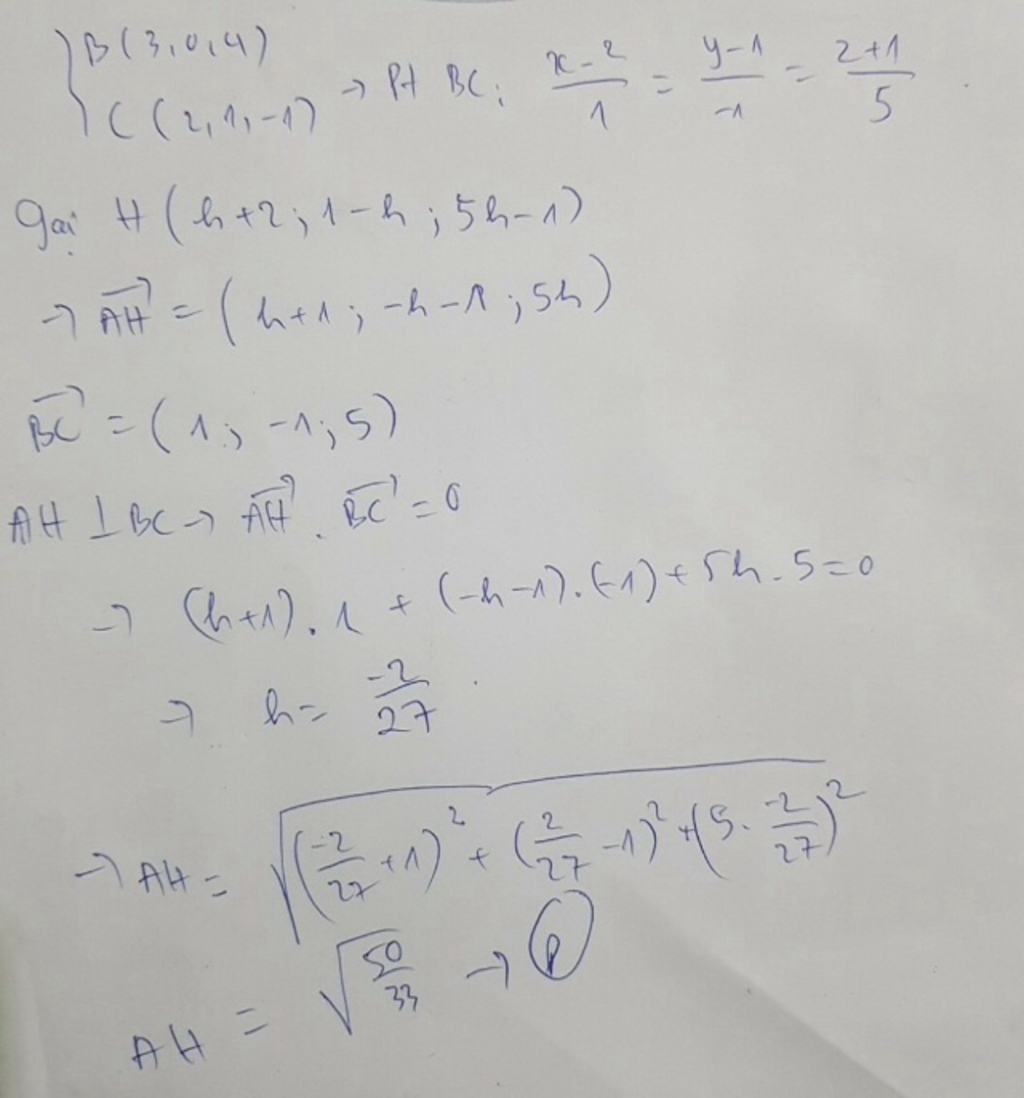 { B(3,0,4)
C(2,1,-1) → Pt BC: \frac{x-2}{1} = \frac{y-1}{-1} = \frac{z+1}{5}
Gọi H(h+2; 1-h; 5h-1)
→ \overrightarrow{AH} = (h+1; -h-1; 5h)
\overrightarrow{BC} = (1; -1; 5)
AH ⊥ BC → \overrightarrow{AH} . \overrightarrow{BC} = 0
→ (h+1).1 + (-h-1).(-1) + 5h.5 = 0
→ h = \frac{-2}{27}
→ AH = \sqrt{(\frac{-2}{27}+1)^2 + (\frac{2}{27}-1)^2 + (5.\frac{-2}{27})^2}
AH = \sqrt{\frac{50}{33}} →